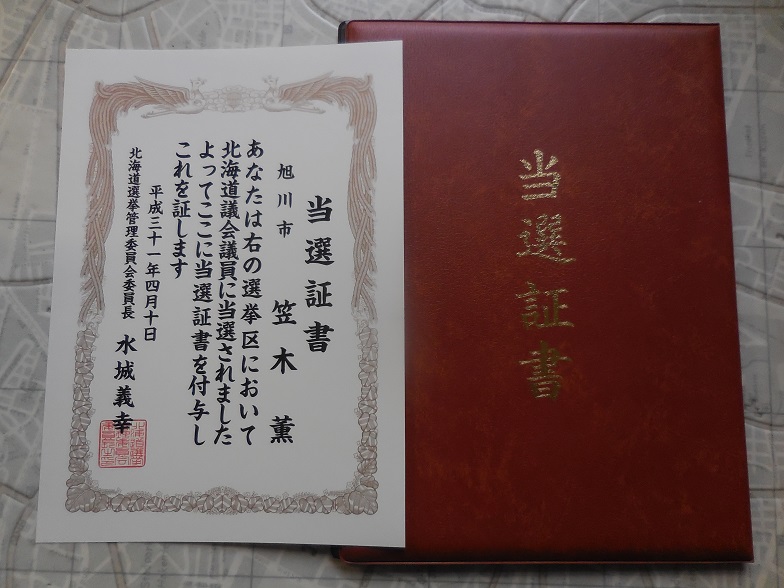 当選証書
旭川市 笠木薫
あなたは右の選挙区において
北海道議会議員に当選されました
よってここに当選証書を付与し
これを証します
平成三十一年四月十日
北海道選挙管理委員会委員長 水城義幸
当選証書